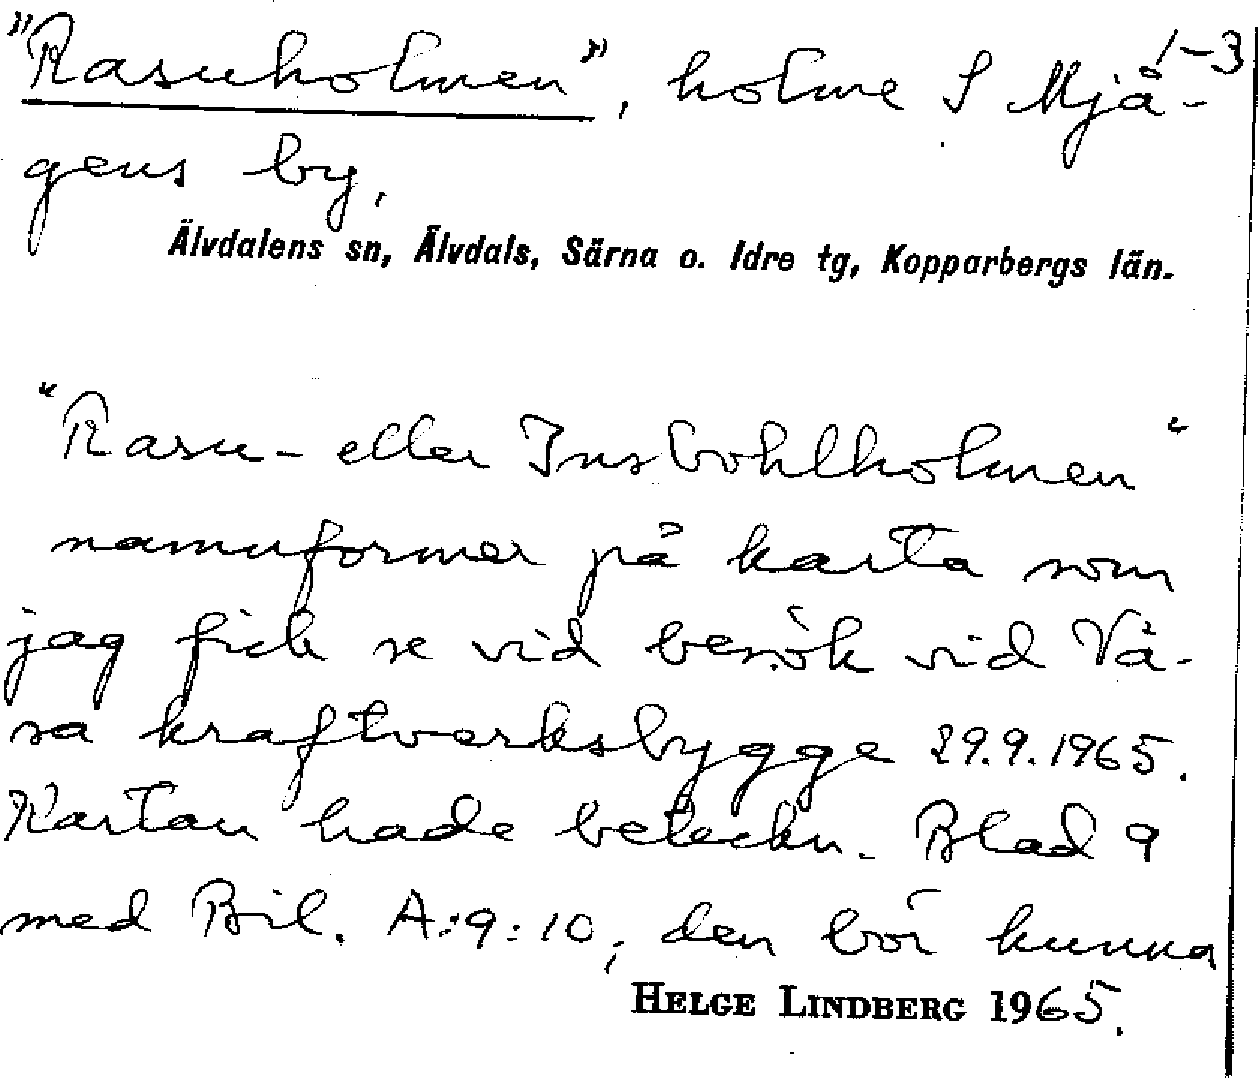 1-3
"Rasuholmen", holme S Mjå-
gens by,
Älvdalens sn, Älvdals, Särna o. Idre tg, Kopparbergs län.
"Rasu- eller Insbohlholmen"
namnformer på karta som
jag fick se vid besök vid Vå-
sa kraftverksbygge 29.9.1965.
Kartan hade beteckn. Blad 9
med Bil. A:9:10; den bör kunna
HELGE LINDBERG 1965.